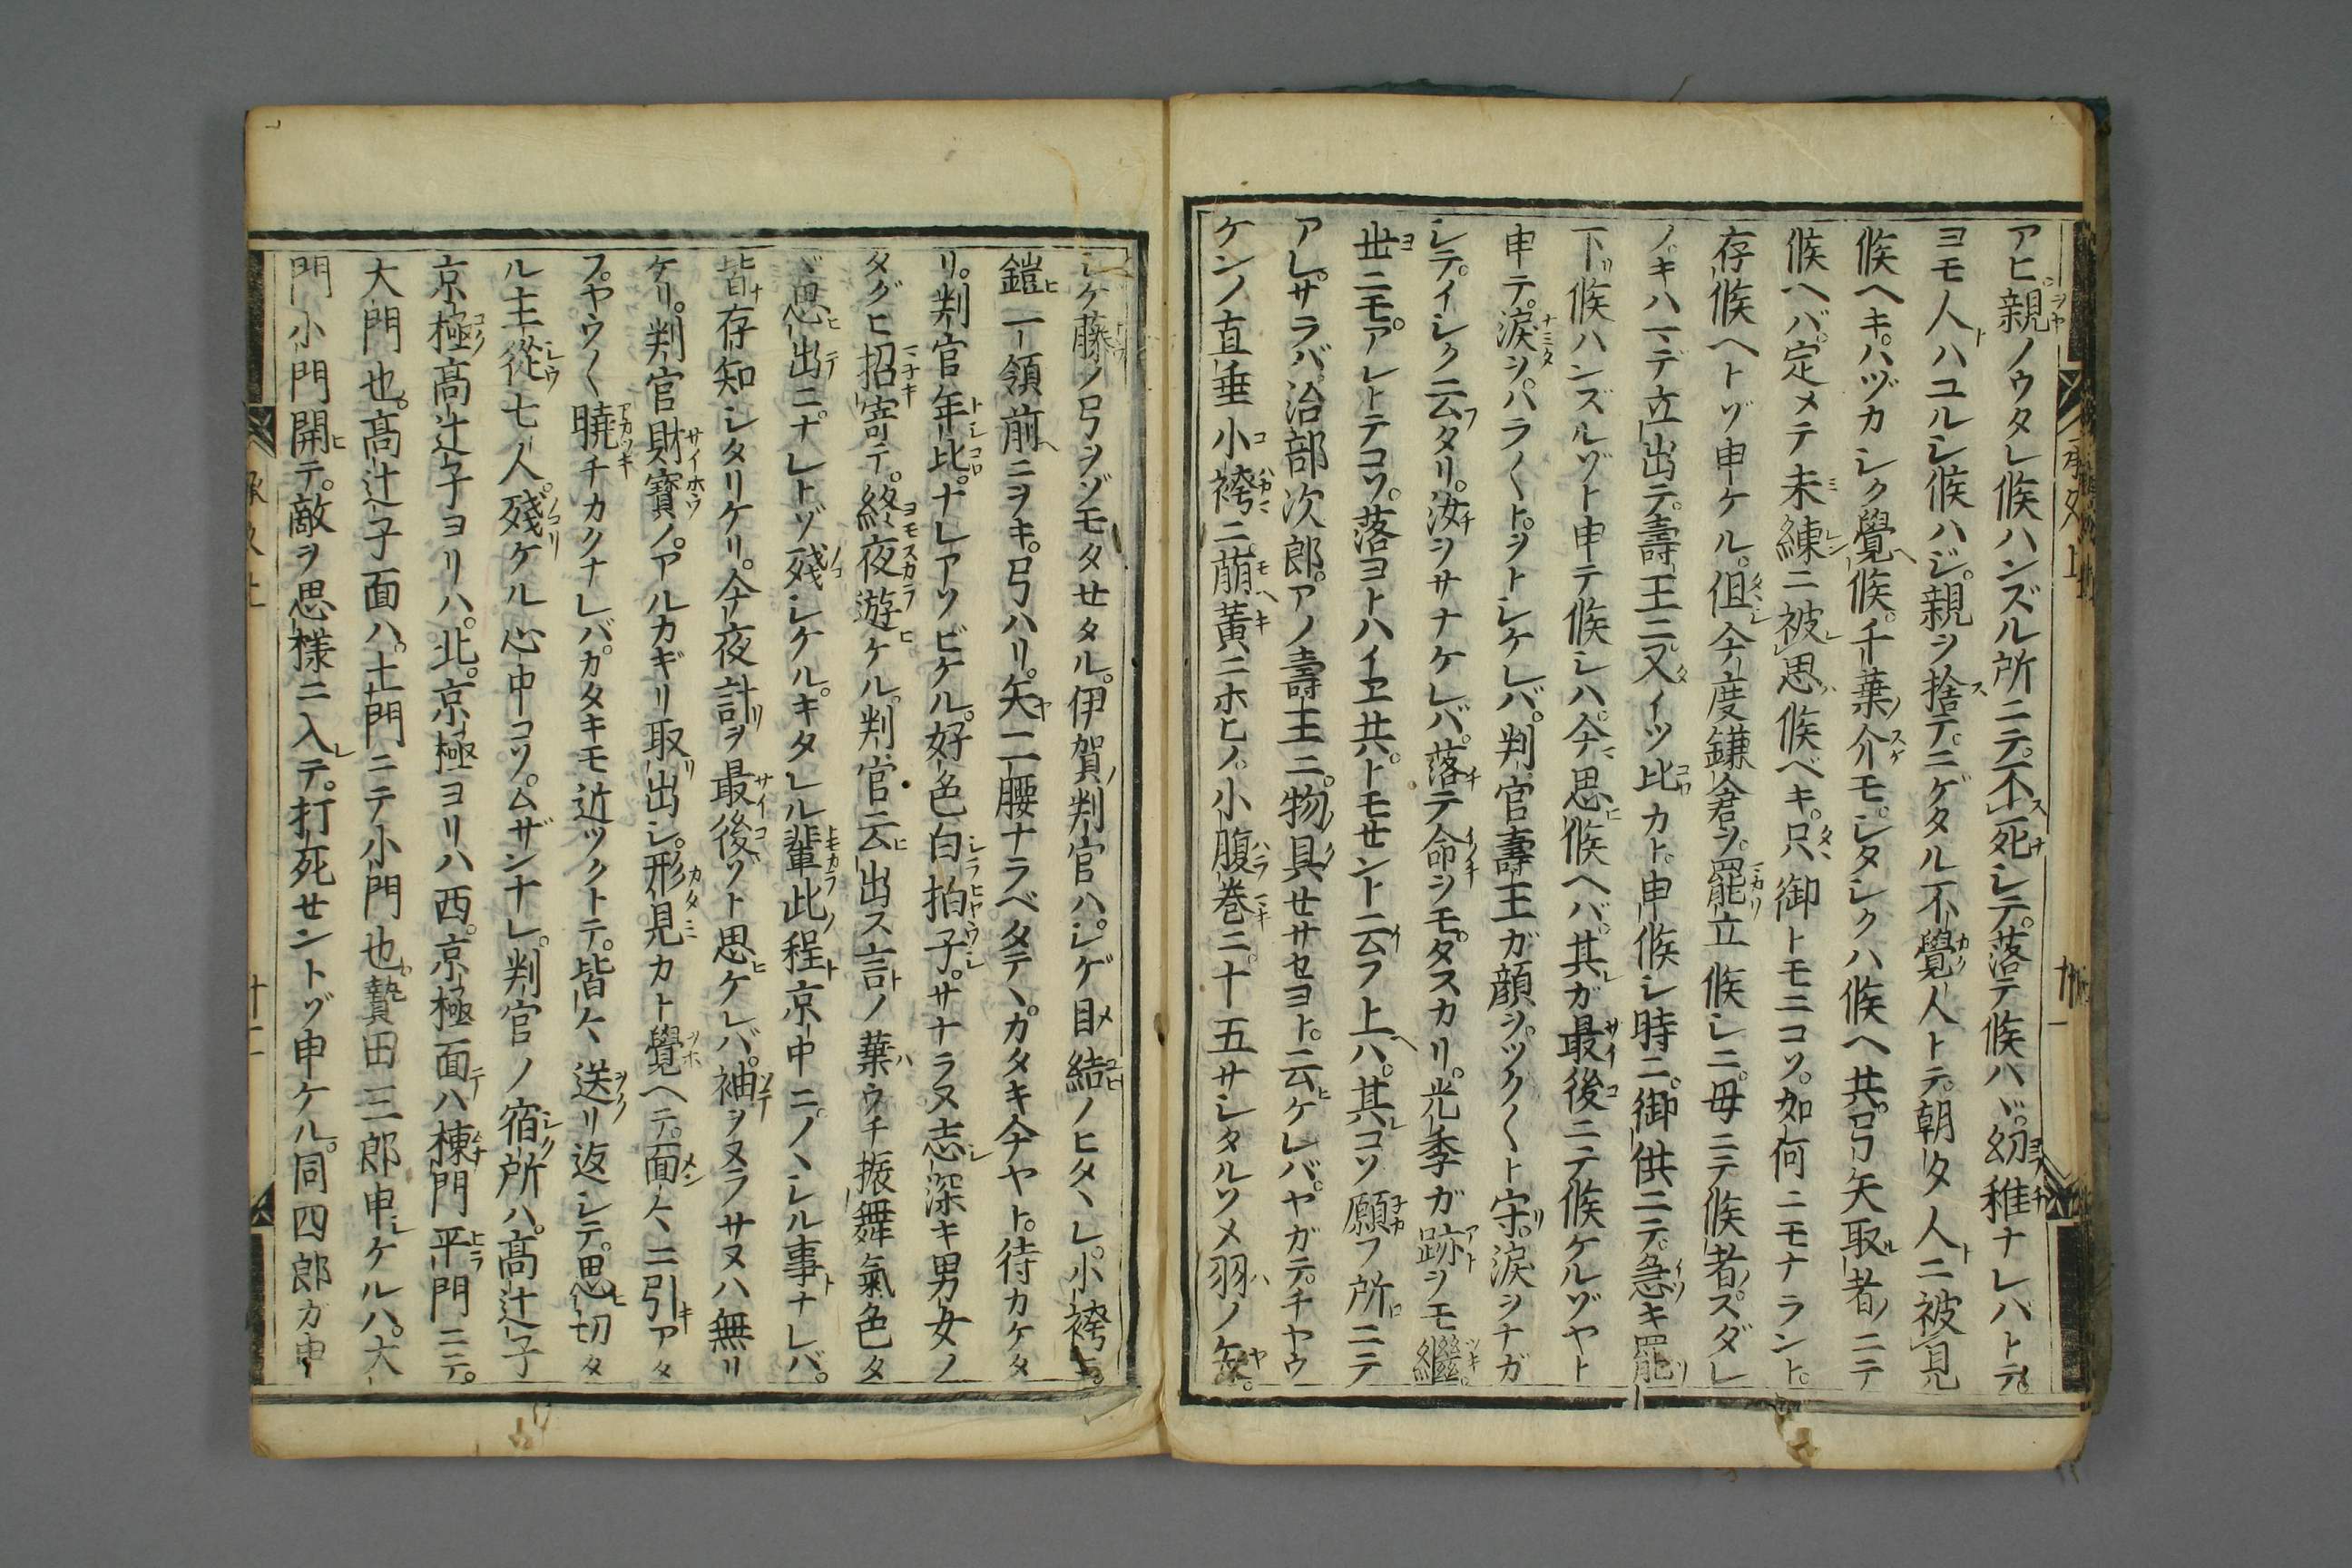 アヒ親ノウタレ候ハンズル所ニテ不死シテ落テ候ハヾ幼稚ナレバトテ
ヨモ人ハユルシ候ハジ親ヲ捨テニゲタル不覺人トテ朝夕人ニ被見
候ヘキハヅカシク覺候千葉介モシタシクハ候ヘ共弓矢取者ニテ
候ヘバ定メテ未練ニ被思候ベキ只御トモニコソ如何ニモナラント
存候ヘトゾ申ケル但今度鎌倉ヲ罷立候シニ母ニテ候者スダレ
ノキハマデ立出テ壽王ニ又イツ比カト申候シ時ニ御供ニテ急キ罷
下候ハンズルゾト申テ候シハ今思候ヘバ其ガ最後ニテ候ケルゾヤト
申テ涙ヲハラ〳〵トヲトシケレバ判官壽王ガ顔ヲツク〴〵ト守涙ヲナガ
シテイシク云タリ汝ヲサナケレバ落テ命ヲモタスカリ光季ガ跡ヲモ繼
世ニモアレトテコソ落ヨトハイヱ共トモセント云フ上ハ其コソ願フ所ニテ
アレサラバ治部次郎アノ壽王ニ物具セサセヨト云ケレバヤガテチヤウ
ケンノ直垂小袴ニ萠黄ニホヒノ小腹巻ニ十五サシタルソメ羽ノ矢
シケ藤ノ弓ヲゾモタセタル伊賀判官ハシゲ目結ノヒタヽレ小袴
鎧一領前ニヲキ弓ハリ矢二腰ナラベタテヽカタキ今ヤト待カケタ
リ判官年比ナレアソビケル好色白拍子サナラヌ志深キ男女ノ
タグヒ招寄テ終夜遊ケル判官云出ス言ノ葉ウチ振舞氣色タ
ヾ思出ニナレトゾ殘シケルキタレル輩此程京中ニノヽシル事ナレバ
皆存知シタリケリ今夜計ヲ最後ソト思ケレバ袖ヲヌラサヌハ無リ
ケリ判官財寶ノアルカギリ取出シ形見カト覺ヘテ面々ニ引アタ
フヤウ〳〵曉チカクナレバカタキモ近ツクトテ皆々送リ返シテ思切タ
ル主從七人殘ケル心中コソムザンナレ判官ノ宿所ハ高辻子
京極高辻子ヨリハ北京極ヨリハ西京極面ハ棟門平門ニテ
大門也高辻子面ハ土門ニテ小門也贄田三郎申ケルハ大
門小門開テ敵ヲ思樣ニ入テ打死セントゾ申ケル同四郎ガ申